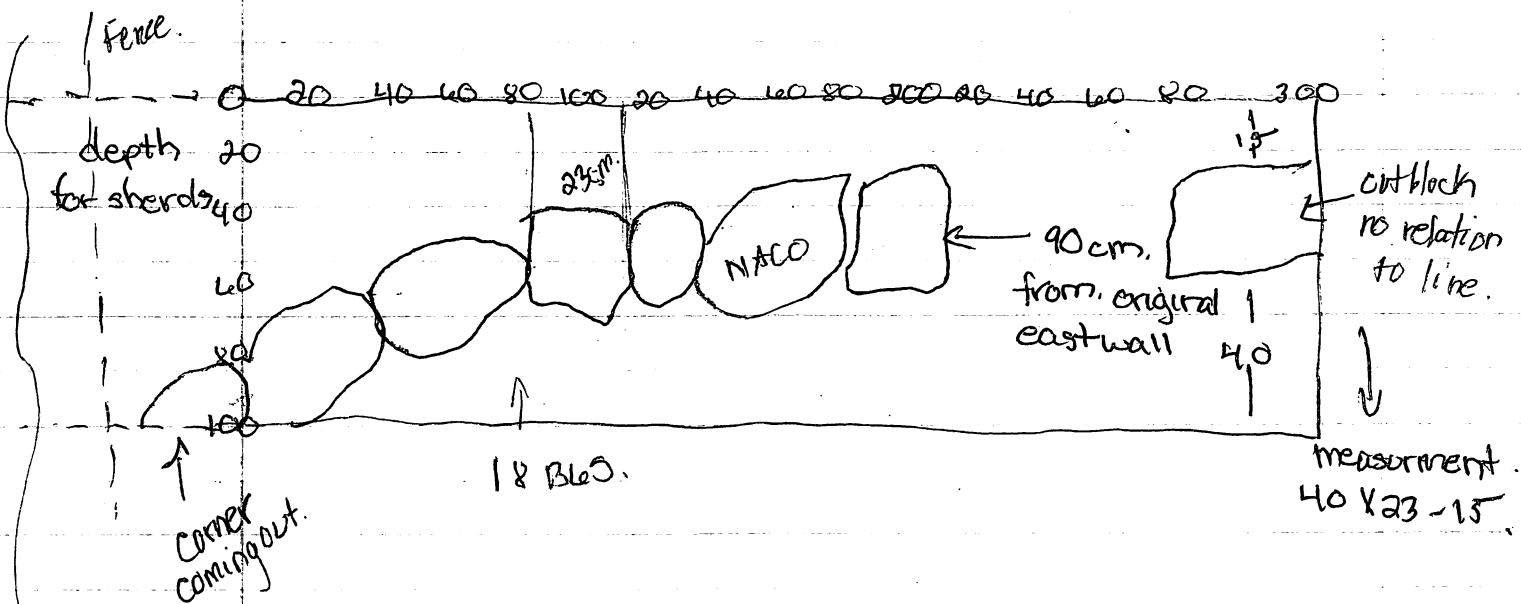 Fence.
0 20 40 60 80 100 20 40 60 80 200 20 40 60 80 300
depth 20
for sherds 40
60
80
100
23cm.
NACO
90 cm.
from. original
east wall
15
40
cutblock
no relation
to line.
measurment.
40 X 23 - 15.
corner
coming out.